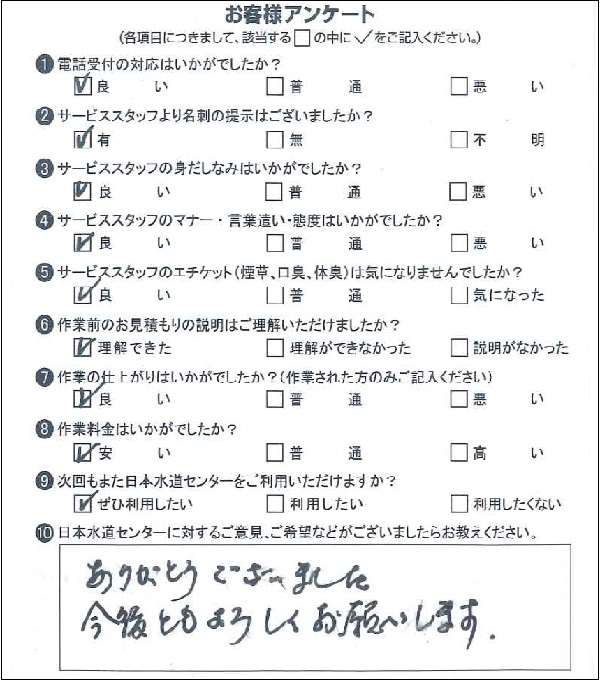 お客様アンケート
(各項目につきまして、該当する□の中に✓をご記入ください。)
❶ 電話受付の対応はいかがでしたか?
☑ 良い □ 普通 □ 悪い
❷ サービススタッフより名刺の提示はございましたか?
☑ 有 □ 無 □ 不明
❸ サービススタッフの身だしなみはいかがでしたか?
☑ 良い □ 普通 □ 悪い
❹ サービススタッフのマナー・言葉遣い・態度はいかがでしたか?
☑ 良い □ 普通 □ 悪い
❺ サービススタッフのエチケット(煙草、口臭、体臭)は気になりませんでしたか?
☑ 良い □ 普通 □ 気になった
❻ 作業前のお見積もりの説明はご理解いただけましたか?
☑ 理解できた □ 理解ができなかった □ 説明がなかった
❼ 作業の仕上がりはいかがでしたか?(作業された方のみご記入ください)
☑ 良い □ 普通 □ 悪い
❽ 作業料金はいかがでしたか?
☑ 安い □ 普通 □ 高い
❾ 次回もまた日本水道センターをご利用いただけますか?
☑ ぜひ利用したい □ 利用したい □ 利用したくない
❿ 日本水道センターに対するご意見、ご希望などがございましたらお教えください。
ありがとうございました
今後ともよろしくお願いします.